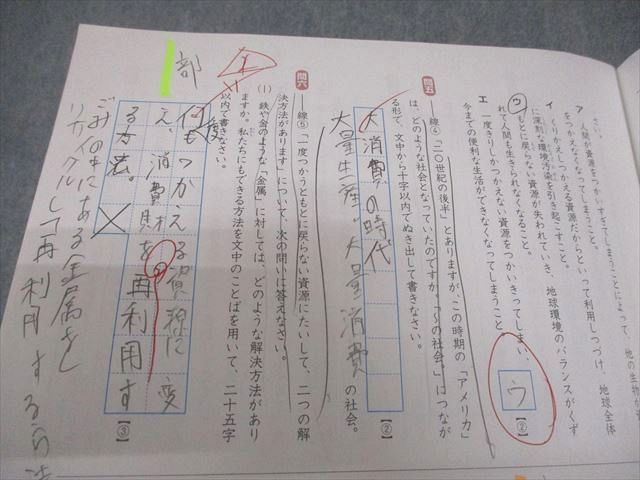 さい。
ア 人間が資源をつかいすぎてしまうことによって、他の生物が
をつかえなくなってしまうこと。
イ くりかえしつかえる資源だからといって利用しつづけ、地球全体
に深刻な環境汚染を引き起こすこと。
ウ もとに戻らない資源が失われていき、地球環境のバランスがくず
れて人間も生きられなくなること。
エ 一度きりしかつかえない資源をつかいきってしまい、
今までの便利な生活ができなくなってしまうこと。
ウ
【②】
問五 ――線④「二〇世紀の後半」とありますが、この時期の「アメリカ」
は、どのような社会となっていたのですか。「の社会」につなが
る形で、文中から十字以内でぬき出して書きなさい。
大消費の時代
の社会。
【②】
大量生産・大量消費
問六 ――線⑤「一度つかうともとに戻らない資源にたいして、二つの解
決方法があります」について、次の問いに答えなさい。
(1) 鉄や金のような「金属」に対しては、どのような解決方法があり
ますか。私たちにもできる方法を文中のことばを用いて、二十五字
以内で書きなさい。
何度もつかえる資源に変
え、消費財を再利用す
る方法。
【③】
部
ごみの中にある金属を
リサイクルして再利用する